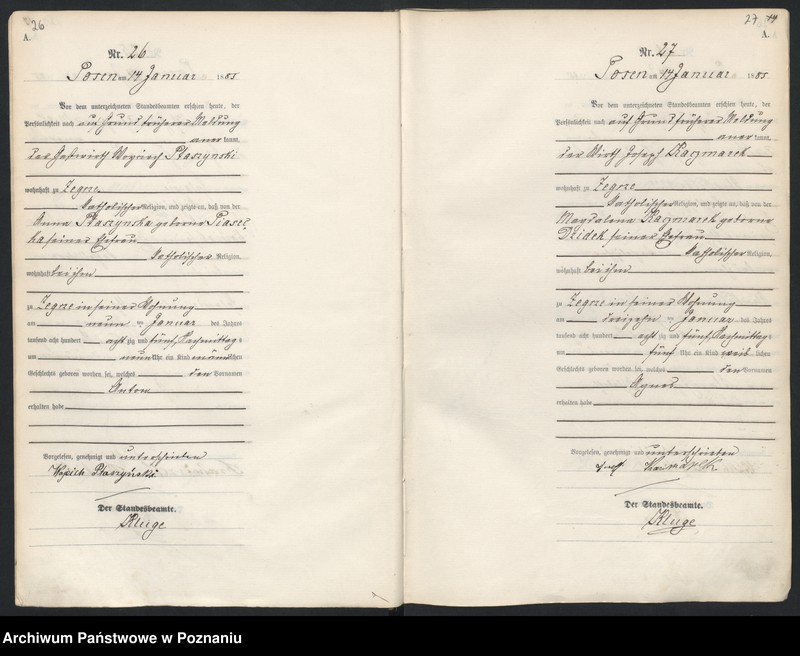 26
A.
Nr. 26
Posen am 14 Januar 1885
Vor dem unterzeichneten Standesbeamten erschien heute, der
Persönlichkeit nach auf Grund früherer Meldung
aner kannt,
der Gastwirth Woyciech Ptaszynski
wohnhaft zu Zegrze
katholischer Religion, und zeigte an, daß von der
Anna Ptaszynska geborne Piasec
ka seiner Ehefrau
katholischer Religion,
wohnhaft bei ihm
zu Zegrze in seiner Wohnung
am neun ten Januar des Jahres
tausend acht hundert acht zig und fünf, Nachmittags
um neun Uhr ein Kind männlichen
Geschlechts geboren worden sei, welches den Vornamen
Anton
erhalten habe
Vorgelesen, genehmigt und unterschrieben
Wojciech Ptaszyński
Der Standesbeamte.
Kluge
27
A.
Nr. 27
Posen am 14 Januar 1885
Vor dem unterzeichneten Standesbeamten erschien heute, der
Persönlichkeit nach auf Grund früherer Meldung
aner kannt,
der Wirth Joseph Kaczmarek
wohnhaft zu Zegrze
katholischer Religion, und zeigte an, daß von der
Magdalena Kaczmarek geborne
Dzidek seiner Ehefrau
katholischer Religion,
wohnhaft bei ihm
zu Zegrze in seiner Wohnung
am dreizehn ten Januar des Jahres
tausend acht hundert acht zig und fünf, Nachmittags
um fünf Uhr ein Kind weib lichen
Geschlechts geboren worden sei, welches den Vornamen
Agnes
erhalten habe
Vorgelesen, genehmigt und unterschrieben
Der Standesbeamte.
Kluge
Archiwum Państwowe w Poznaniu